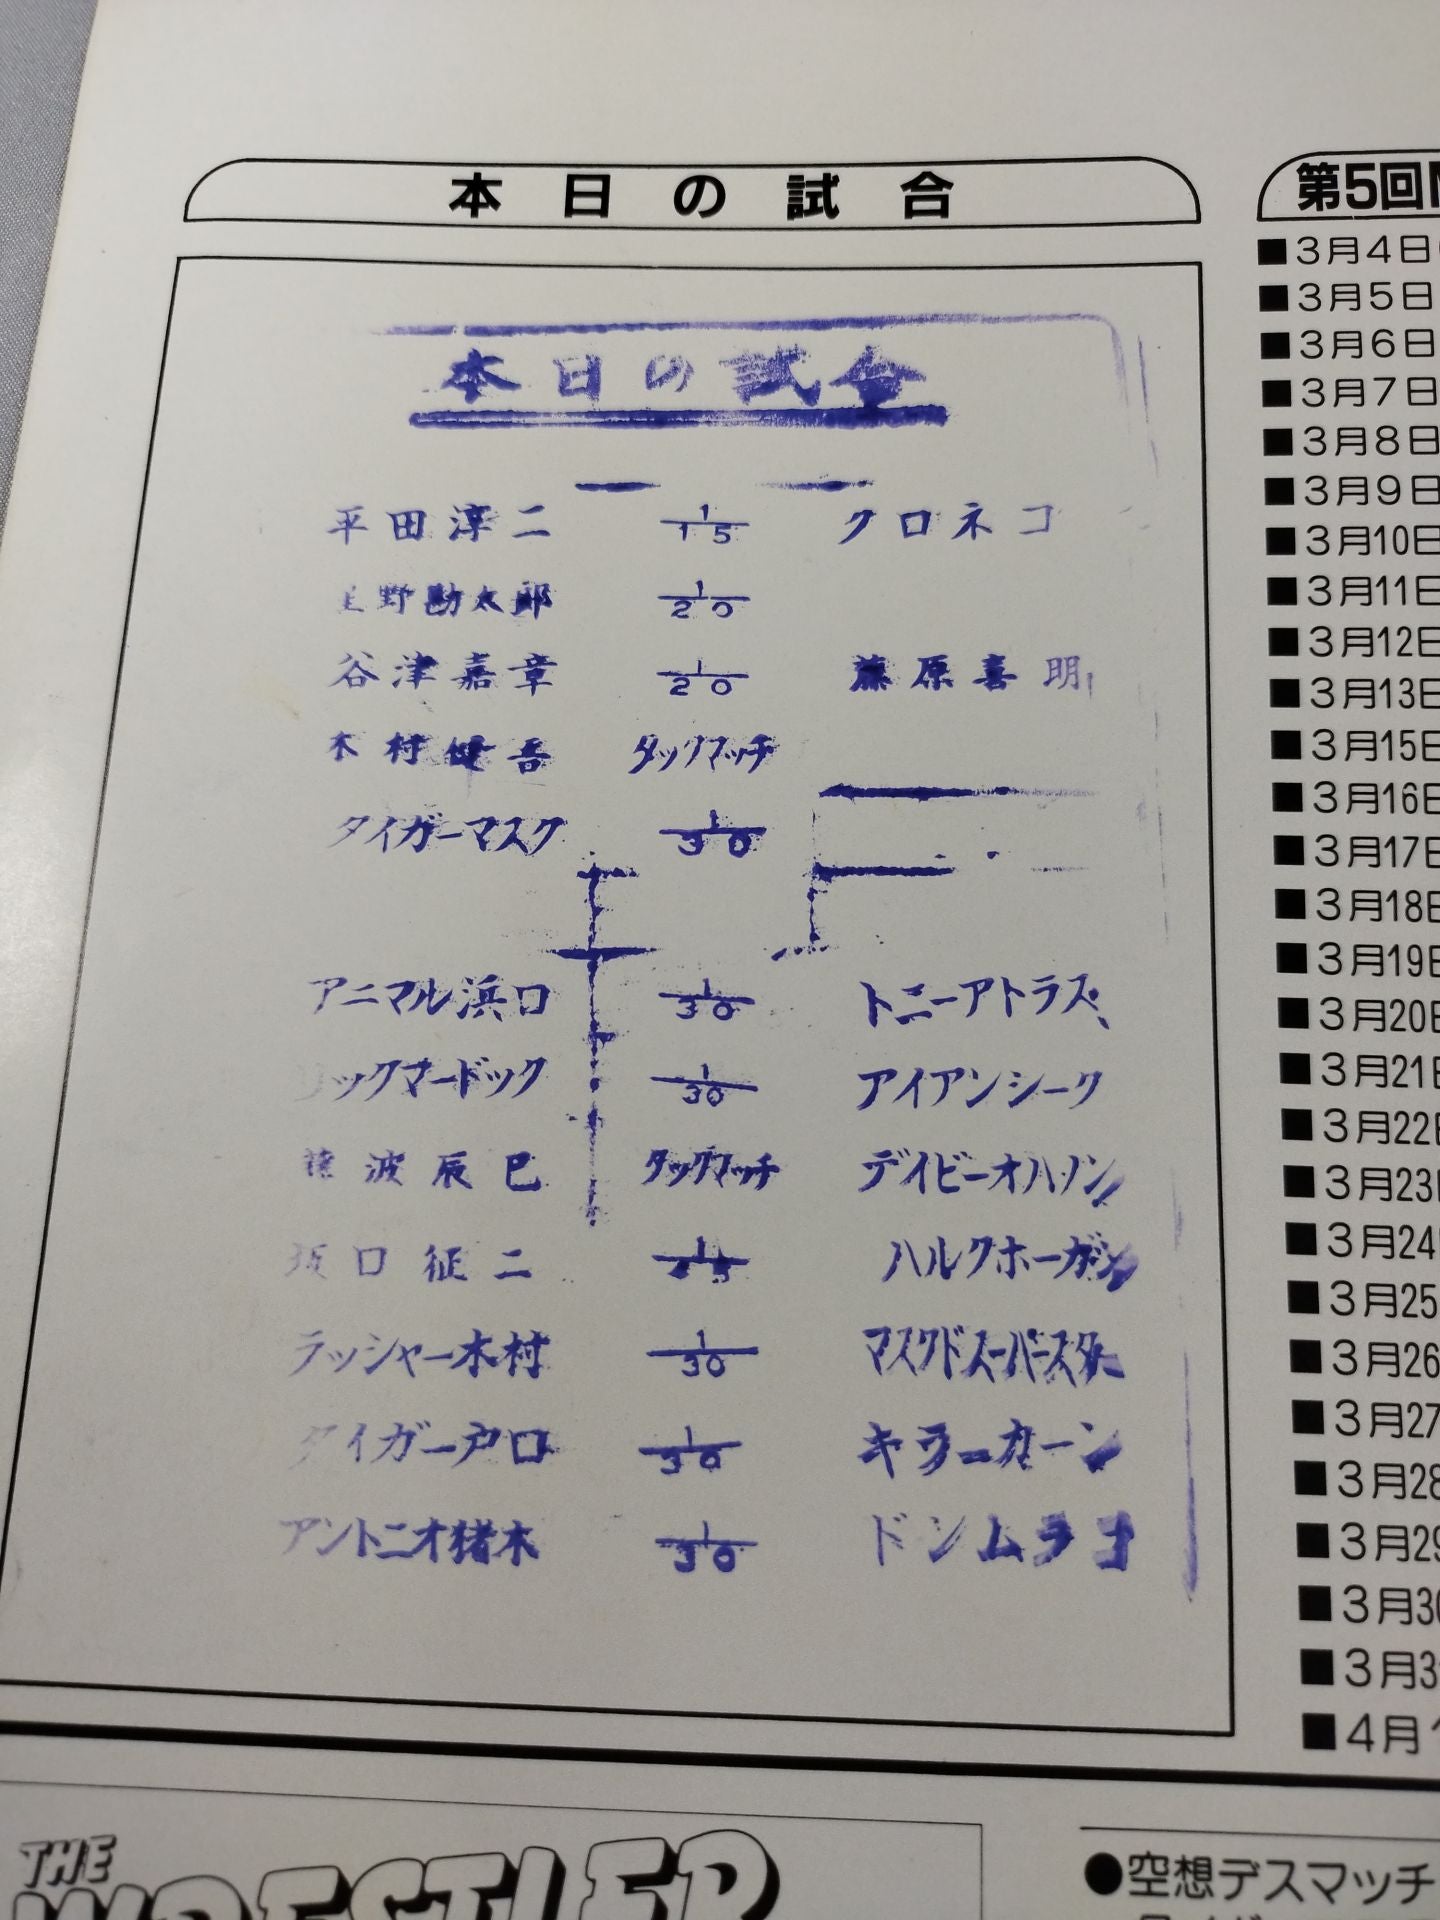 本日の試合
本日の試合
平田淳二 1/15 クロネコ
野勘太郎 1/20
谷津嘉章 1/20 藤原喜明
木村健吾 タッグマッチ
タイガーマスク 1/30
アニマル浜口 1/30 トニーアトラス
リックマードック 1/30 アイアンシーク
藤波辰巳 タッグマッチ デイビーオハノン
坂口征二 1/45 ハルクホーガン
ラッシャー木村 1/30 マスクドスーパースター
タイガー戸口 1/30 キラーカーン
アントニオ猪木 1/30 ドンムラコ
第5回
■3月4日
■3月5日
■3月6日
■3月7日
■3月8日
■3月9日
■3月10日
■3月11日
■3月12日
■3月13日
■3月15日
■3月16日
■3月17日
■3月18日
■3月19日
■3月20日
■3月21日
■3月22日
■3月23日
■3月24
■3月25
■3月26
■3月27
■3月28
■3月29
■3月30
■3月3
■4月
THE
WRESTLER
●空想デスマッチ